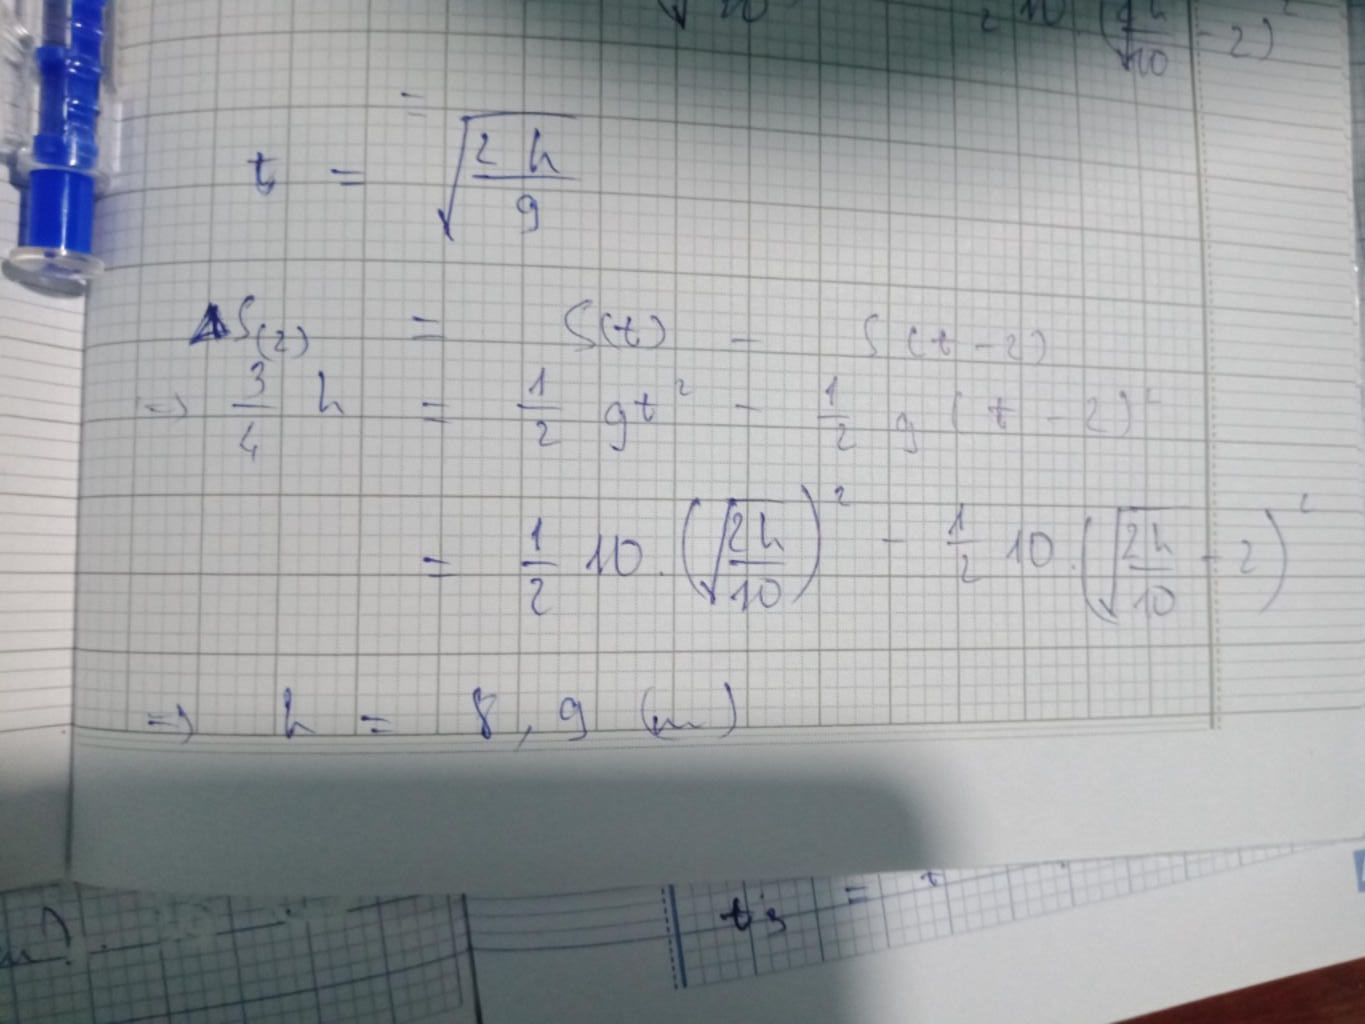 √ 10 2 10 (√2h/10 - 2)²
=
t = √(2h/g)
ΔS(2) = S(t) - S(t-2)
=> 3/4 h = 1/2 gt² - 1/2 g (t - 2)²
= 1/2 10 . (√2h/10)² - 1/2 10 . (√2h/10 - 2)²
=> h = 8,9 (m)
t3 =